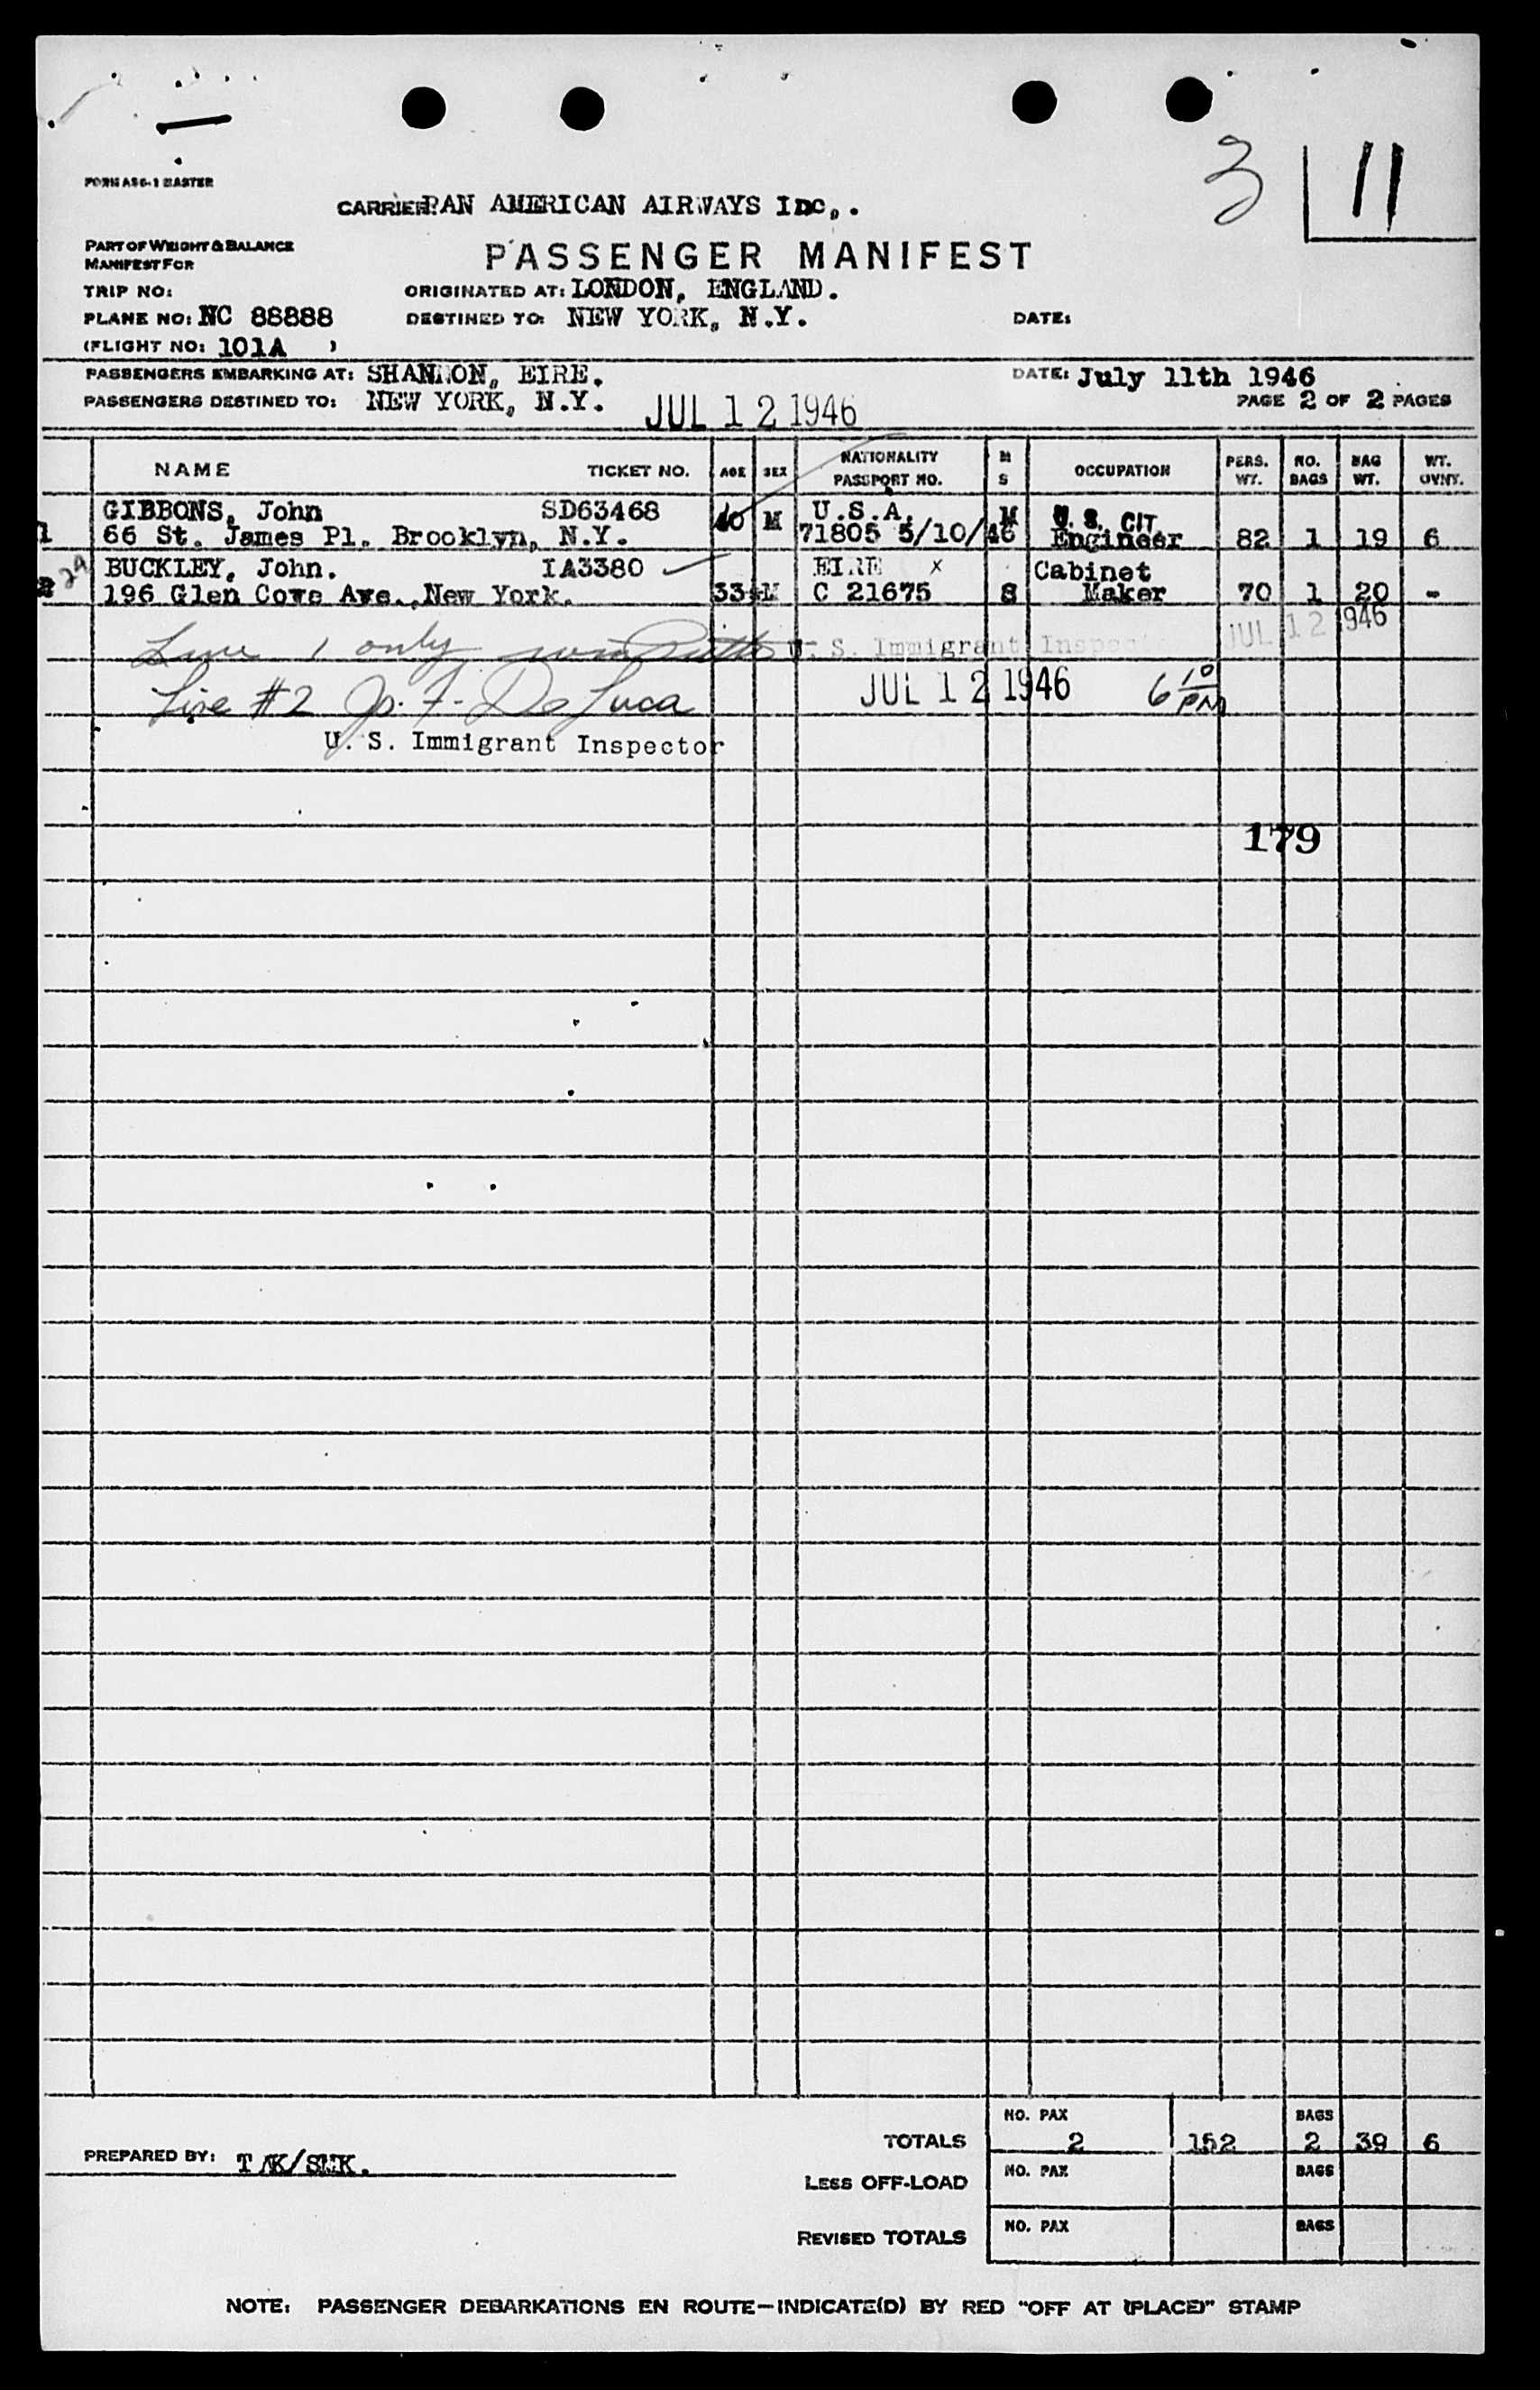 3 11
FORM ASG-1 MASTER
CARRIER: PAN AMERICAN AIRWAYS Inc,.
PART OF WEIGHT & BALANCE
MANIFEST FOR
PASSENGER MANIFEST
TRIP NO: ORIGINATED AT: LONDON, ENGLAND.
PLANE NO: NC 88888 DESTINED TO: NEW YORK, N.Y. DATE:
(FLIGHT NO: 101A )
PASSENGERS EMBARKING AT: SHANNON, EIRE. DATE: July 11th 1946
PASSENGERS DESTINED TO: NEW YORK, N.Y. JUL 12 1946 PAGE 2 OF 2 PAGES
NAME TICKET NO. AGE SEX NATIONALITY PASSPORT NO. M S OCCUPATION PERS. WT. NO. BAGS BAG WT. WT. OVNT.
GIBBONS, John SD63468 40 M U.S.A. M U. S. CIT.
1 66 St. James Pl. Brooklyn, N.Y. 71805 5/10/46 Engineer 82 1 19 6
BUCKLEY, John. IA3380 EIRE x Cabinet
2 196 Glen Cove Ave., New York. 33 M C 21675 S Maker 70 1 20 -
Line 1 only U. S. Immigrant Inspector JUL 12 1946
Line #2 Jp. F. De Luca JUL 12 1946 6 10 PM
U. S. Immigrant Inspector
179
NO. PAX BAGS
TOTALS 2 152 2 39 6
PREPARED BY: T K/SMK.
LESS OFF-LOAD NO. PAX BAGS
REVISED TOTALS NO. PAX BAGS
NOTE: PASSENGER DEBARKATIONS EN ROUTE—INDICATE(D) BY RED "OFF AT (PLACE)" STAMP